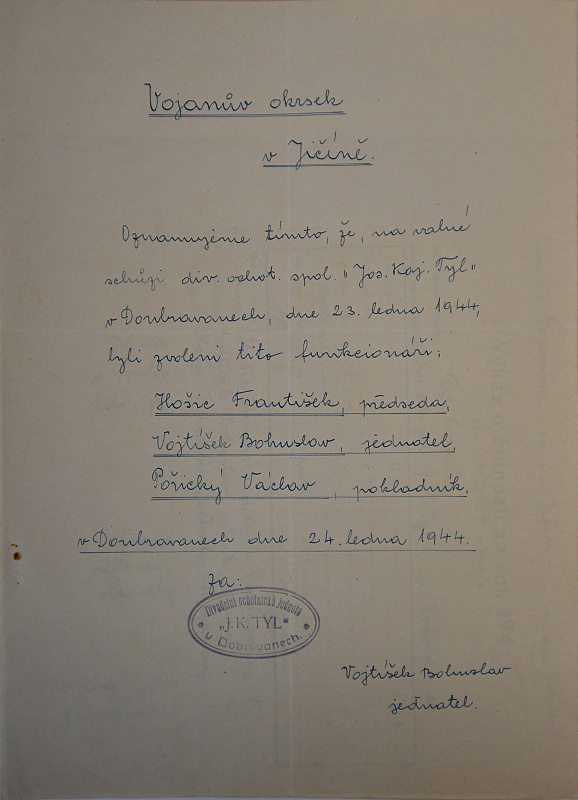 Vojanův okrsek
v Jičíně.
Oznamujeme tímto, že, na valné
schůzi div. ochot. spol. "Jos. Kaj. Tyl"
v Doubravanech, dne 23. ledna 1944,
byli zvoleni tito funkcionáři:
Hošic František, předseda,
Vojtíšek Bohuslav, jednatel,
Pořický Václav, pokladník,
v Doubravanech dne 24. ledna 1944.
za:
Divadelní ochotnická jednota
"J. K. TYL"
v Dobravanech.
Vojtíšek Bohuslav
jednatel.